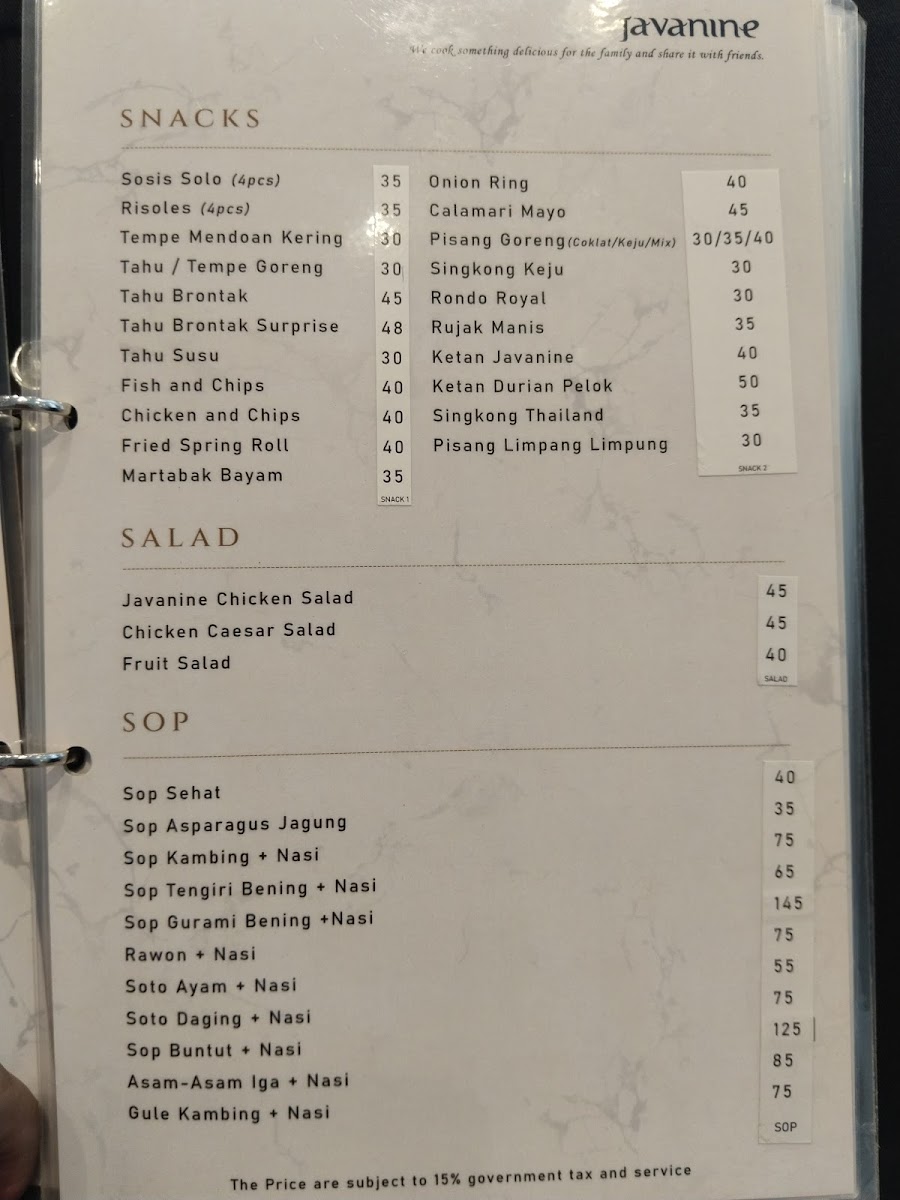 Javanine
We cook something delicious for the family and share it with friends.
SNACKS
Sosis Solo (4pcs) 35
Risoles (4pcs) 35
Tempe Mendoan Kering 30
Tahu / Tempe Goreng 30
Tahu Brontak 45
Tahu Brontak Surprise 48
Tahu Susu 30
Fish and Chips 40
Chicken and Chips 40
Fried Spring Roll 40
Martabak Bayam 35
SNACK 1
Onion Ring 40
Calamari Mayo 45
Pisang Goreng (Coklat/Keju/Mix) 30/35/40
Singkong Keju 30
Rondo Royal 30
Rujak Manis 35
Ketan Javanine 40
Ketan Durian Pelok 50
Singkong Thailand 35
Pisang Limpang Limpung 30
SNACK 2
SALAD
Javanine Chicken Salad 45
Chicken Caesar Salad 45
Fruit Salad 40
SALAD
SOP
Sop Sehat 40
Sop Asparagus Jagung 35
Sop Kambing + Nasi 75
Sop Tengiri Bening + Nasi 65
Sop Gurami Bening +Nasi 145
Rawon + Nasi 75
Soto Ayam + Nasi 55
Soto Daging + Nasi 75
Sop Buntut + Nasi 125
Asam-Asam Iga + Nasi 85
Gule Kambing + Nasi 75
SOP
The Price are subject to 15% government tax and service